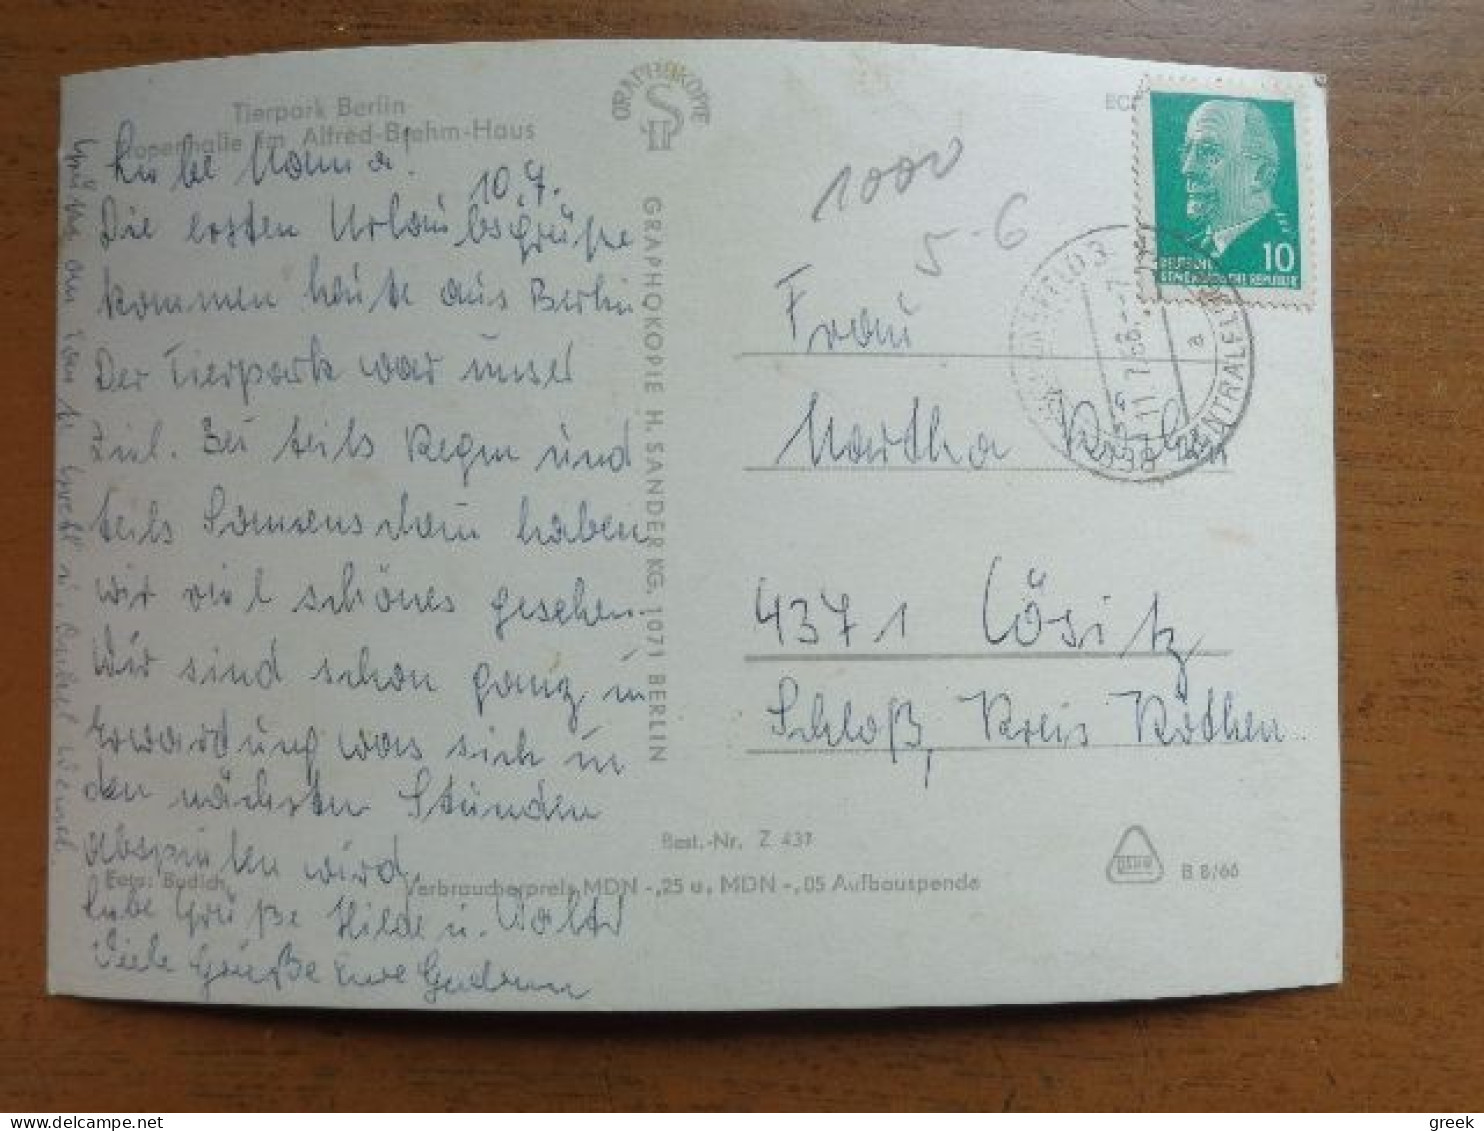 Tierpark Berlin
Tropenhalle im Alfred-Brehm-Haus
GRAPHOKOPIE
Liebe Mama!
10.7.
Die ersten Urlaubsgrüße
kommen heute aus Berlin
Der Tierpark war unser
Ziel. Bei teils Regen und
teils Sonnenschein haben
wir viel schönes gesehen.
Wir sind schon ganz in
Erwartung was sich in
den nächsten Stunden
abspielen wird.
Liebe Grüße Hilde u. Walter
Viele Grüße Eure Gudrun
Grüße an
Foto: Budich
GRAPHOKOPIE H. SANDER KG, 1071 BERLIN
1000
5-6
DEUTSCHE
DEMOKRATISCHE REPUBLIK
10
11.7.66
a
Frau
Martha
4371 Cösitz
Schloß, Kreis Köthen
Best.-Nr. Z 437
Verbraucherpreis MDN -,25 u. MDN -,05 Aufbauspende
B 8/66
greek
delcampe.net